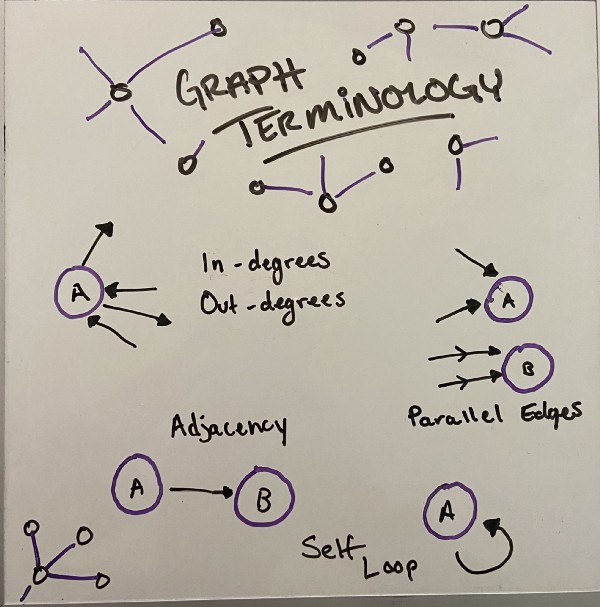 GRAPH
TERMINOLOGY
In-degrees
Out-degrees
A
A
B
Parallel Edges
Adjacency
A
B
A
Self
Loop